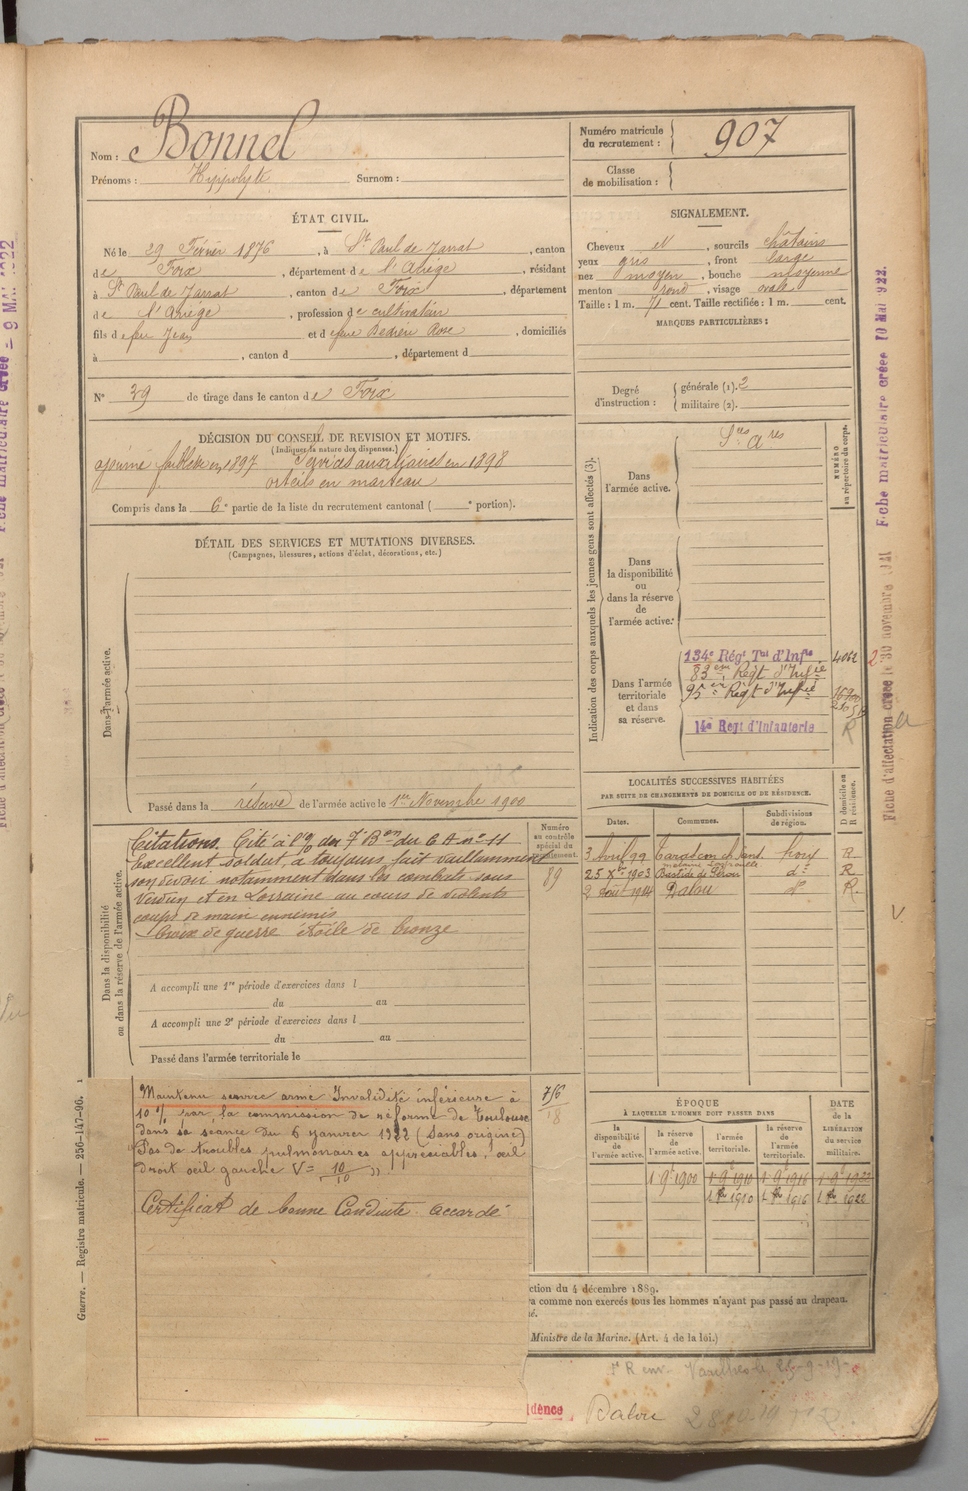 Nom : Bonnel
Prénoms : Hippolyte Surnom :
Numéro matricule du recrutement : 907
Classe de mobilisation :
ÉTAT CIVIL.
Né le 29 Février 1876, à St Paul de Jarrat, canton
de Foix, département de l'Ariège, résidant
à St Paul de Jarrat, canton de Foix, département
de l'Ariège, profession de cultivateur
fils de feu Jean et de feue Rose, domiciliés
à , canton d , département d
N° 39 de tirage dans le canton de Foix
SIGNALEMENT.
Cheveux et , sourcils châtains
yeux gris , front large
nez moyen , bouche moyenne
menton rond , visage ovale
Taille : 1 m. 71 cent. Taille rectifiée : 1 m. cent.
MARQUES PARTICULIÈRES :
Degré d'instruction : générale (1). 2
militaire (2).
DÉCISION DU CONSEIL DE REVISION ET MOTIFS.
(Indiquer la nature des dispenses.)
ajourné faiblesse en 1897 Services auxiliaires en 1898
orteils en marteau
Compris dans la 6e partie de la liste du recrutement cantonal ( e portion).
DÉTAIL DES SERVICES ET MUTATIONS DIVERSES.
(Campagnes, blessures, actions d'éclat, décorations, etc.)
Dans l'armée active.
Passé dans la réserve de l'armée active le 1er Novembre 1900
Indication des corps auxquels les jeunes gens sont affectés (3).
NUMÉRO au répertoire du corps.
Dans l'armée active.
Ses Ares
Dans la disponibilité ou dans la réserve de l'armée active.
Dans l'armée territoriale et dans sa réserve.
134e Régt Tal d'Infie 4062
83em Régt d'Infie
95em Régt d'Infie
14e Regt d'Infanterie R
LOCALITÉS SUCCESSIVES HABITÉES
PAR SUITE DE CHANGEMENTS DE DOMICILE OU DE RÉSIDENCE.
Dates. Communes. Subdivisions de région. D domicile ou R résidence.
3 Avril 99 Foix R.
25 Xbre 1903 Bastide de Sérou do R.
2 Août 1914 Dalou do R.
Dans la disponibilité ou dans la réserve de l'armée active.
Numéro au contrôle spécial du recrutement.
89
Citations. Cité à l'o/ du 7 Bon du 6 A no 11
Excellent soldat, a toujours fait vaillamment
son devoir notamment dans les combats sous
Verdun et en Lorraine au cours de violents
coups de main ennemis
Croix de guerre étoile de bronze
A accompli une 1re période d'exercices dans l
du au
A accompli une 2e période d'exercices dans l
du au
Passé dans l'armée territoriale le
Maintenu service armé Invalidité inférieure à
10 % par la commission de réforme de Toulouse
dans sa séance du 6 janvier 1922 (Sans origine)
Pas de troubles pulmonaires appréciables, œil
droit œil gauche V = 10/10 "
Certificat de bonne Conduite accordé
ÉPOQUE
À LAQUELLE L'HOMME DOIT PASSER DANS
DATE de la LIBÉRATION du service militaire.
la disponibilité de l'armée active. la réserve de l'armée active. l'armée territoriale. la réserve de l'armée territoriale.
1 9bre 1900 1 9bre 1910 1 9bre 1916 1 9bre 1922
ction du 4 décembre 1889.
ra comme non exercés tous les hommes n'ayant pas passé au drapeau.
é.
Ministre de la Marine. (Art. 4 de la loi.)
idence Dalou
Guerre. — Registre matricule. — 256-147-96.
Fiche matriculaire créée 10 MAI 1922.
Fiche d'affectation créée le 30 novembre 1921